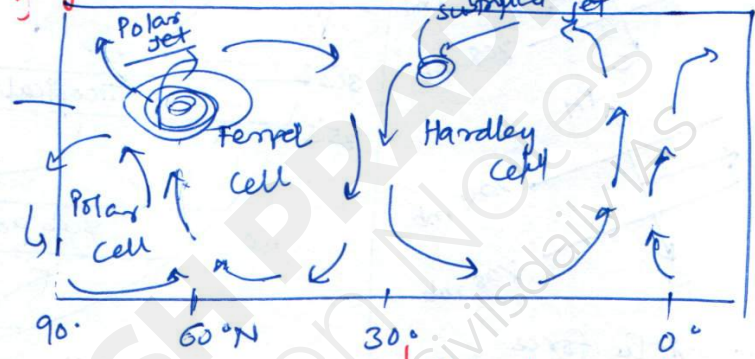 Polar
Jet
Jet
Ferrel
Cell
Hardley
Cell
Polar
Cell
90°
60°N
30°
0°
civilsdaily IAS